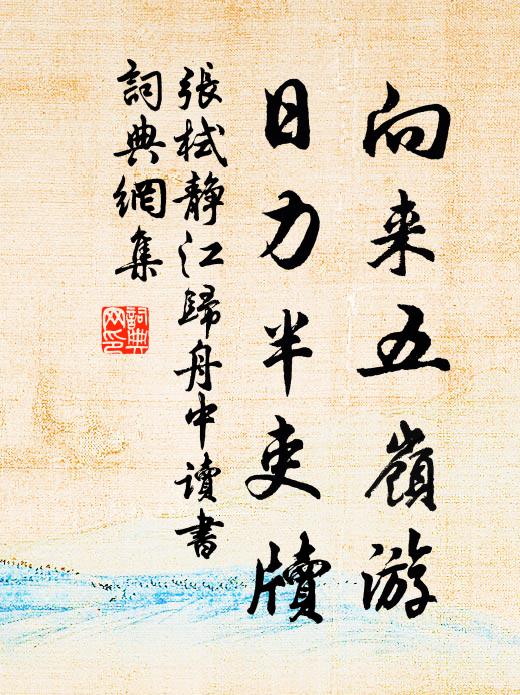 向来五嶺游
日力半吏牘
張栻静江歸舟中讀書
詞典網集
詞典网印